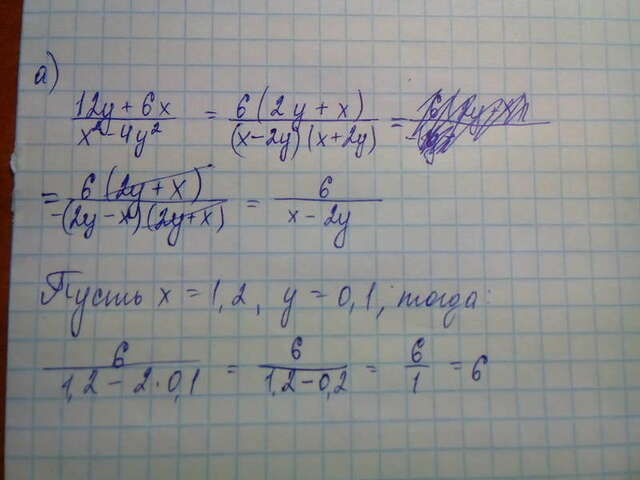 а)
12y + 6x / x² - 4y² = 6(2y + x) / (x-2y)(x+2y) =
= 6(2y + x) / -(2y - x)(2y+x) = 6 / x - 2y
Пусть x = 1,2, y = 0,1, тогда:
6 / 1,2 - 2·0,1 = 6 / 1,2 - 0,2 = 6 / 1 = 6